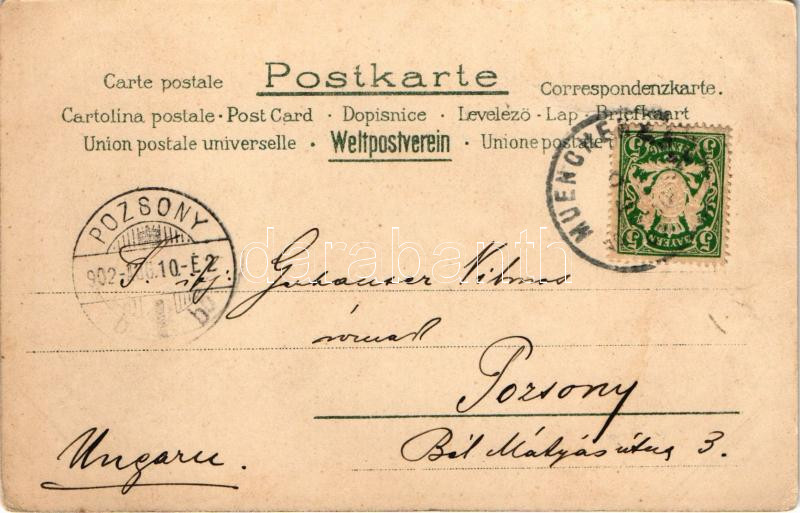 Postkarte
Carte postale
Correspondenzkarte.
Cartolina postale · Post Card · Dopisnice · Levelező - Lap - Briefkaart
Union postale universelle · Weltpostverein · Unione postale
MUENCHEN
BAYERN
5 5
5 5
POZSONY
902 10-É2
T. ifj. Vilmos
úrnak
Pozsony
Bél Mátyás útcza 3.
Ungarn.
darabanth